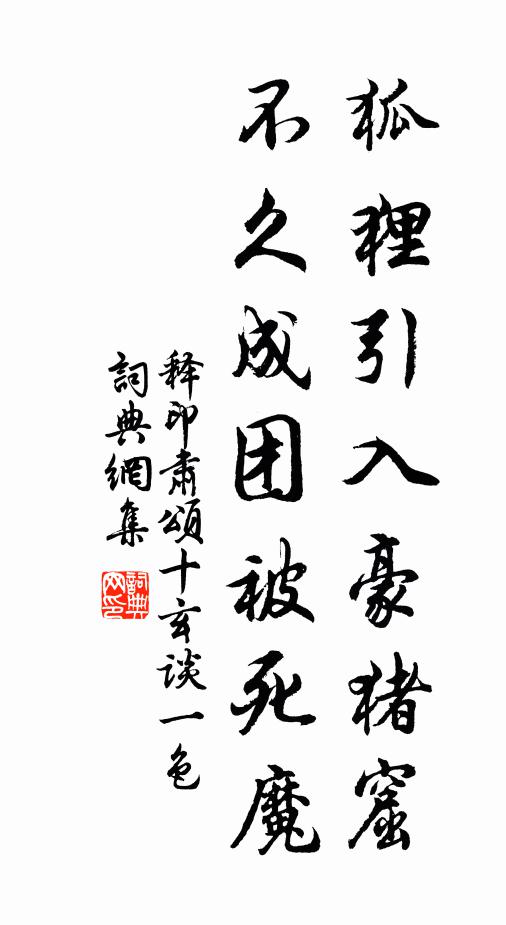 狐狸引入豪猪窟
不久成团被死魔
释印肃颂十玄谈一色
詞典網集
詞典网印